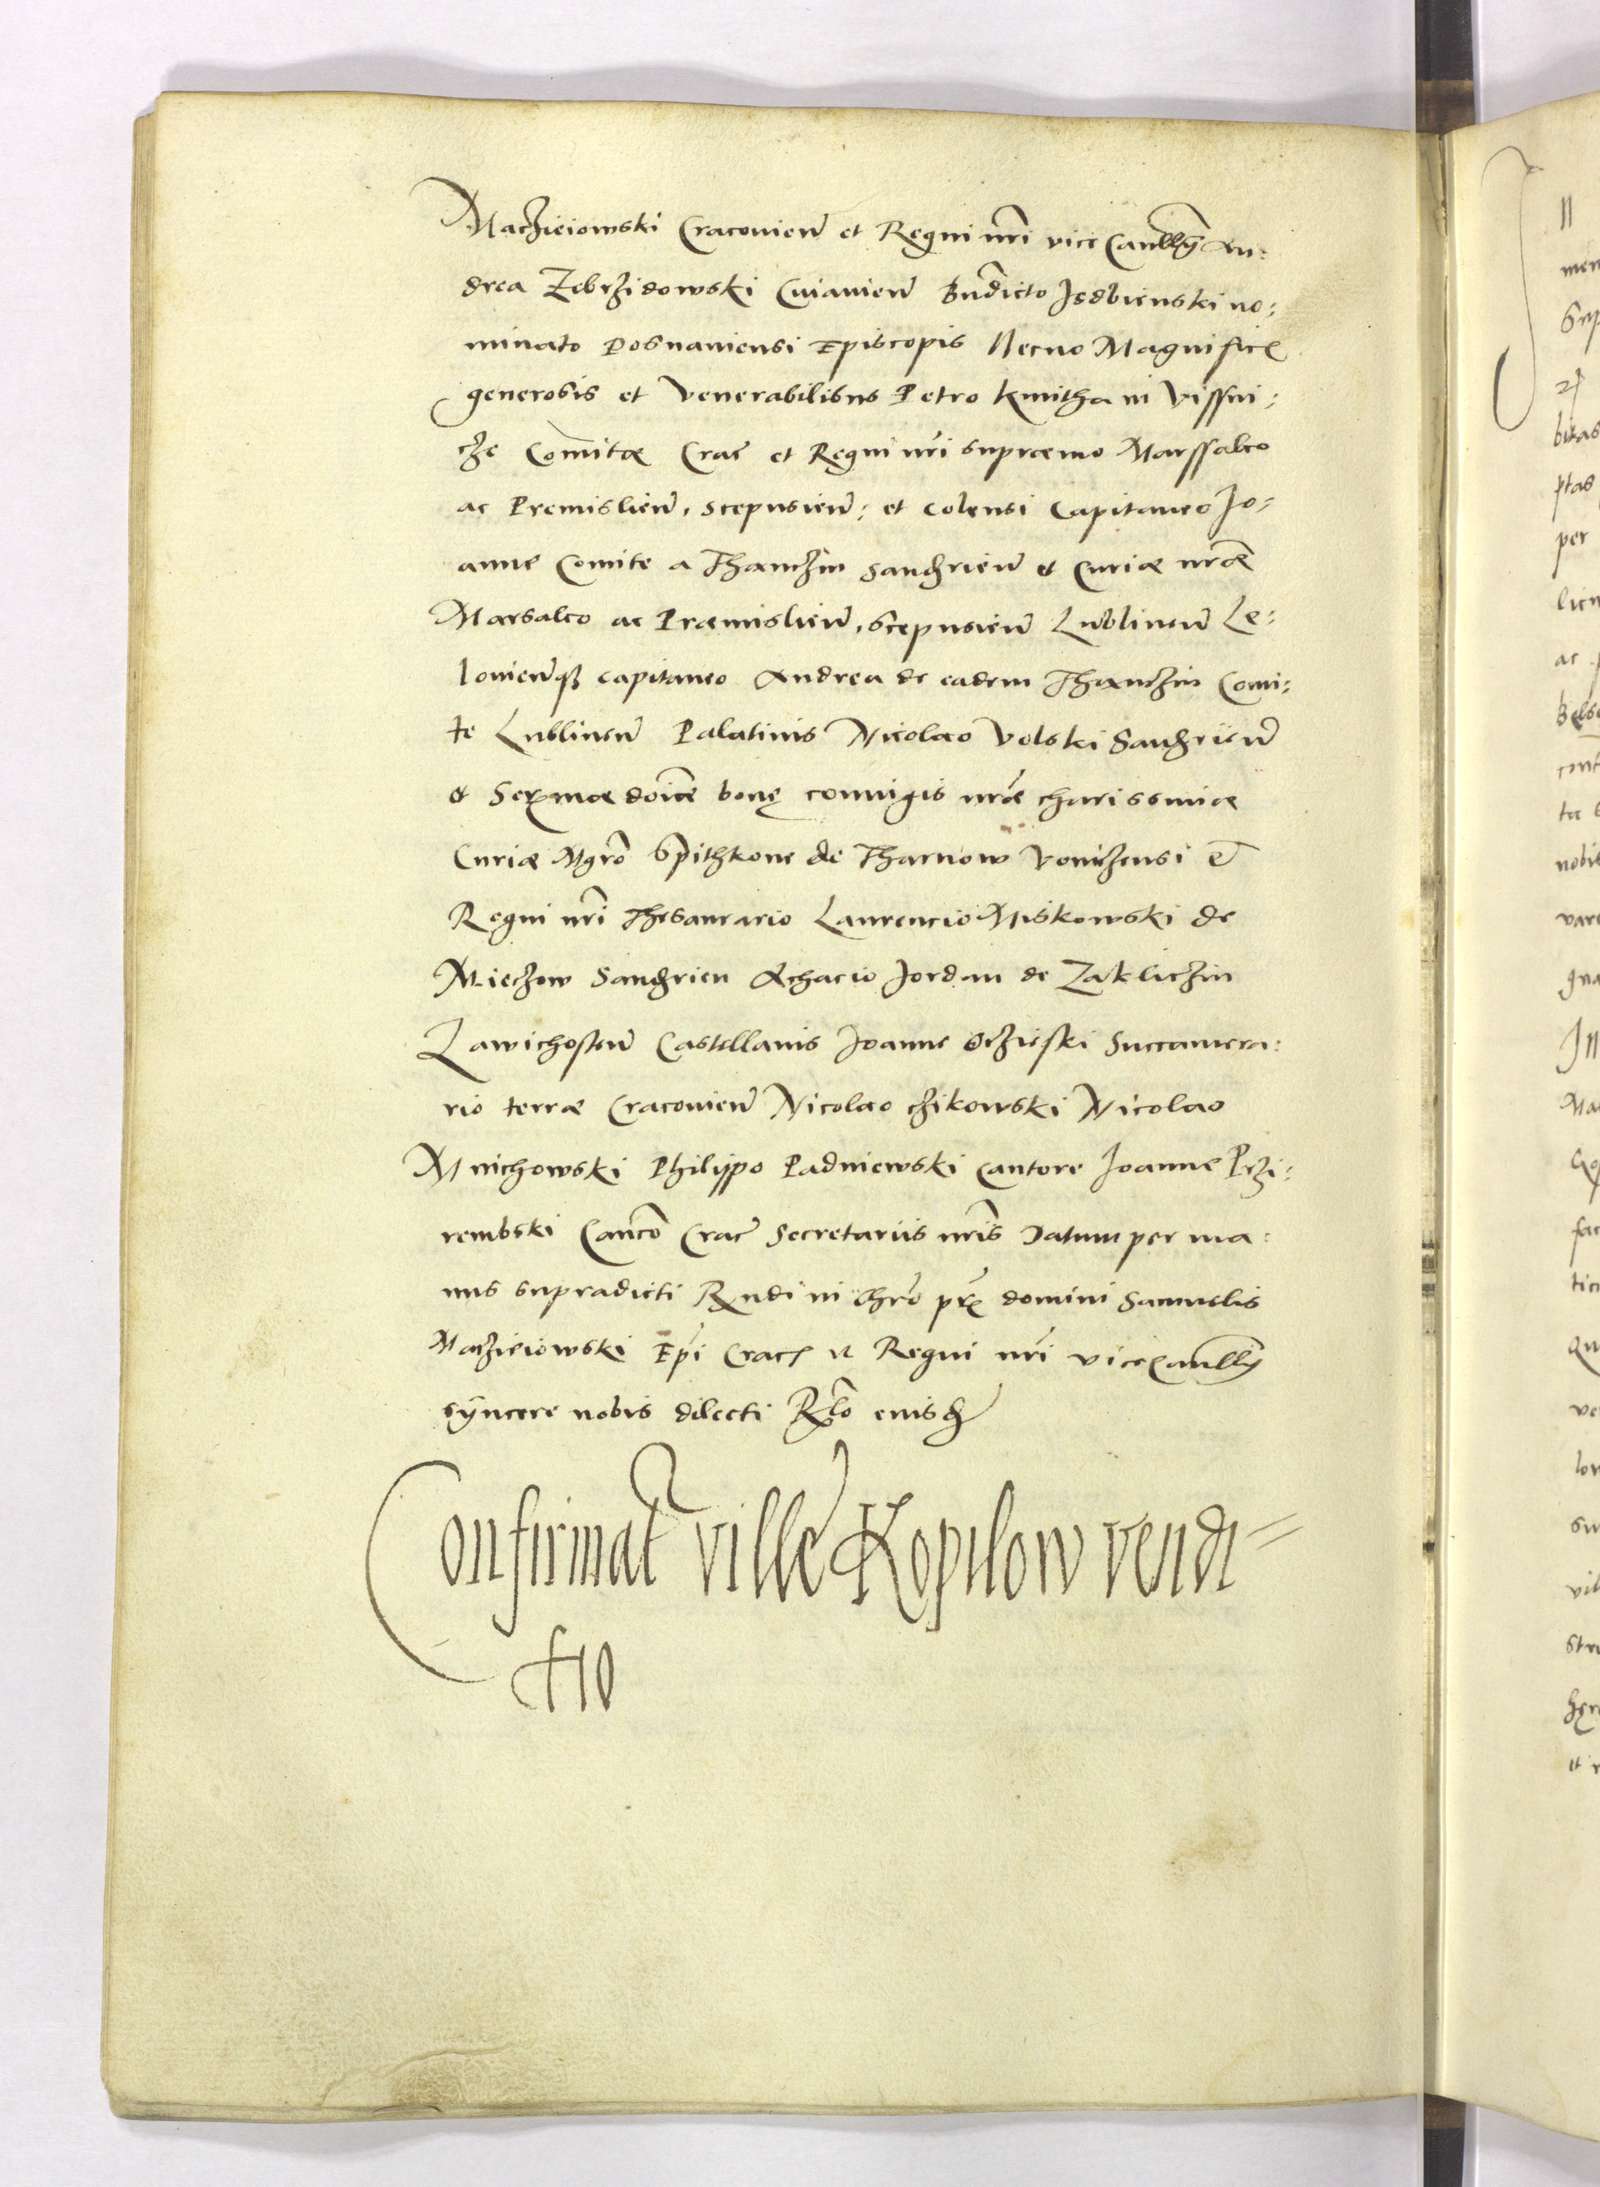 Maczieiowski Cracovien̄ et Regni nr̄i vice Cancll̄o An:
drea Zebrzidowski Cuiavien̄ Bn̄dicto Jsdbienski no:
minato Posnaniensi Episcopis Necno Magnifice
generosis et Venerabilibus Petro kmitha in Vissni:
cze Com̄itæ Crac̄ et Regni nr̄i supraemo Marssalco
ac Premislien̄, Scepusien̄: et Colensi Capitaneo Jo:
anne Comite a Thanczin Sandrien̄ & Curiæ nr̄æ
Marsalco ac Præmislien̄, Scepusien̄ Lublinen̄ Le:
lovien̄qȝ capitaneo Andrea de eadem Thanczin Comi:
te Lublinen̄ Palatinis Nicolao Volski Sandrien̄
& Sermæ doīcæ bonę conuigis nr̄æ charissimæ
Curiæ Mgrō Spithkone de Tharnow Voniczensi et
Regni nr̄i Thesaurario Laurencio Miskowski de
Mieczow Sandrien Achacio Jordan de Zakliczin
Zawichosten̄ Castellanis Joanne Oczieski Succamera:
rio terræ Cracovien̄ Nicolao czikowski Nicolao
Mnichowski Philippo Padniewski Cantore Joanne Przi:
rembski Canco Crac̄ Secretariis nr̄is Datum per ma:
nus supradicti Rndi in chrō pr̄ domini Samuelis
Maczieiowski Ep̄i Crac et Regni nr̄i viceCancll̄
syncere nobis dilecti Rlo eiusd
Confirmat̄ ville Kopilow vendi=
tio